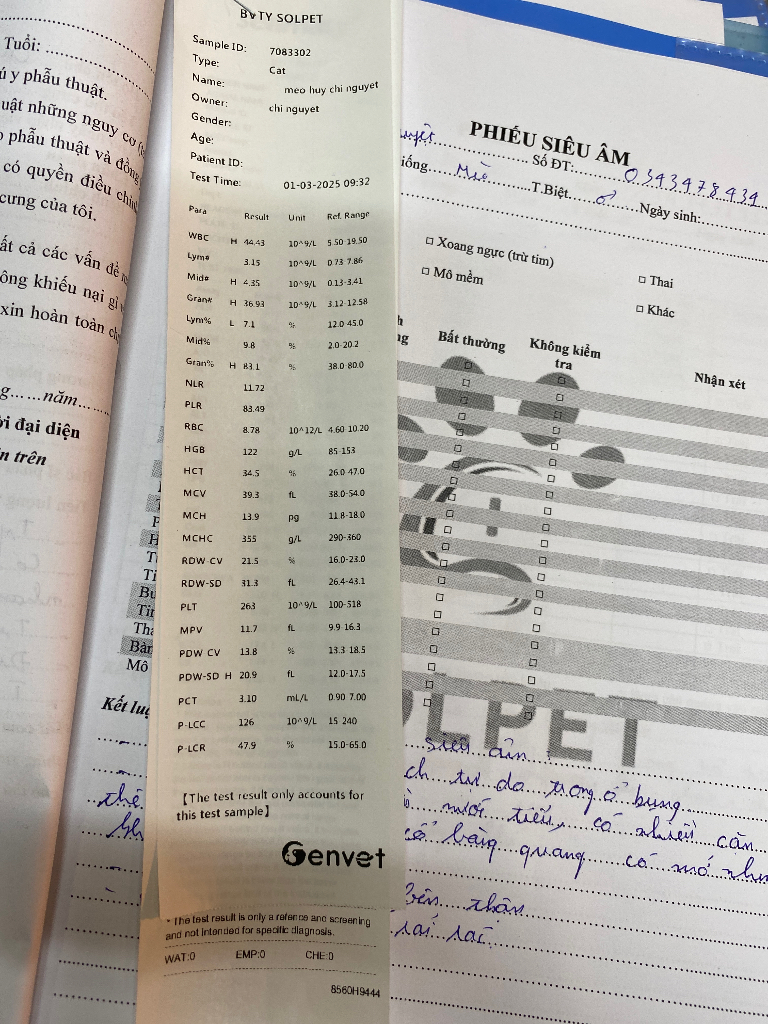 Tuổi:
ú y phẫu thuật.
uật những nguy cơ
phẫu thuật và đồng
có quyền điều chỉnh
cưng của tôi.
ất cả các vấn đề
ông khiếu nại gì
xin hoàn toàn
g......năm......
ời đại diện
n trên
BVTY SOLPET
Sample ID: 7083302
Type: Cat
Name: meo huy chi nguyet
Owner: chi nguyet
Gender:
Age:
Patient ID:
Test Time: 01-03-2025 09:32
Para Result Unit Ref. Range
WBC H 44.43 10^9/L 5.50-19.50
Lym# 3.15 10^9/L 0.73-7.86
Mid# H 4.35 10^9/L 0.13-3.41
Gran# H 36.93 10^9/L 3.12-12.58
Lym% L 7.1 % 12.0-45.0
Mid% 9.8 % 2.0-20.2
Gran% H 83.1 % 38.0-80.0
NLR 11.72
PLR 83.49
RBC 8.78 10^12/L 4.60-10.20
HGB 122 g/L 85-153
HCT 34.5 % 26.0-47.0
MCV 39.3 fL 38.0-54.0
MCH 13.9 pg 11.8-18.0
MCHC 355 g/L 290-360
RDW-CV 21.5 % 16.0-23.0
RDW-SD 31.3 fL 26.4-43.1
PLT 263 10^9/L 100-518
MPV 11.7 fL 9.9-16.3
PDW-CV 13.8 % 13.3-18.5
PDW-SD H 20.9 fL 12.0-17.5
PCT 3.10 mL/L 0.90-7.00
P-LCC 126 10^9/L 15-240
P-LCR 47.9 % 15.0-65.0
【The test result only accounts for
this test sample】
Genvet
* The test result is only a refence and screening
and not intended for specific diagnosis.
WAT:0 EMP:0 CHE:0
8560H9444
PHIẾU SIÊU ÂM
Số ĐT: 0343478434
iống Mèo T.Biệt ♂ Ngày sinh:
Xoang ngực (trừ tim) Thai
Mô mềm Khác
Bất thường Không kiểm tra Nhận xét
Mô
Kết luậ
siêu âm:
ch tự do trong ổ bụng
tiểu, có nhiều cặn
cổ bàng quang có
bên thận
LPET